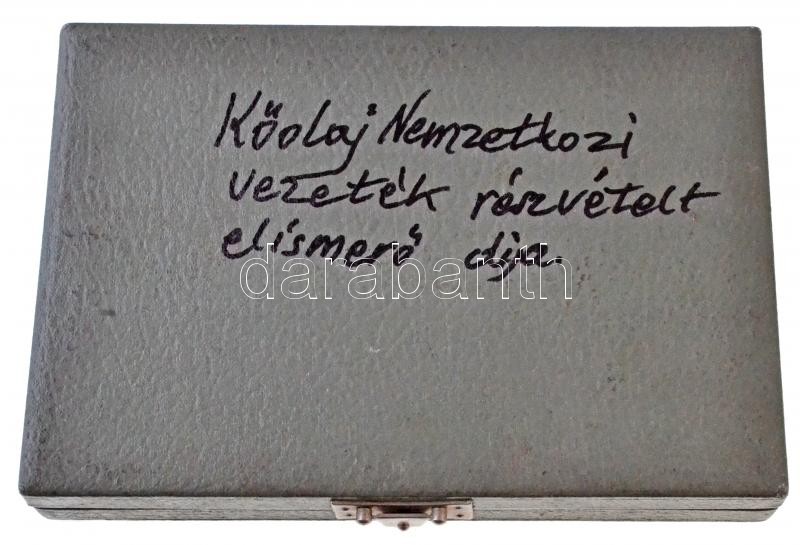 Kőolaj Nemzetkozi
vezeték részvételt
elismerő dija.
darabanth